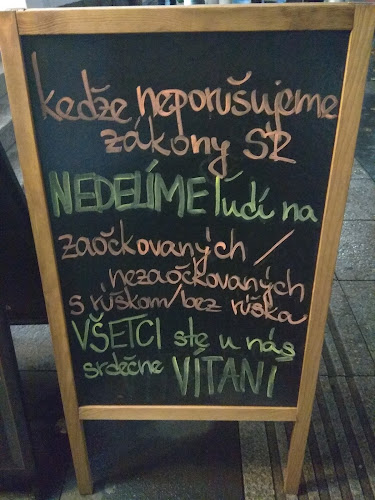 kedže neporušujeme
zákony SR
NEDELÍME ľudí na
zaočkovaných /
nezaočkovaných
s rúškom/bez rúška
VŠETCI ste u nás
srdečne VÍTANÍ